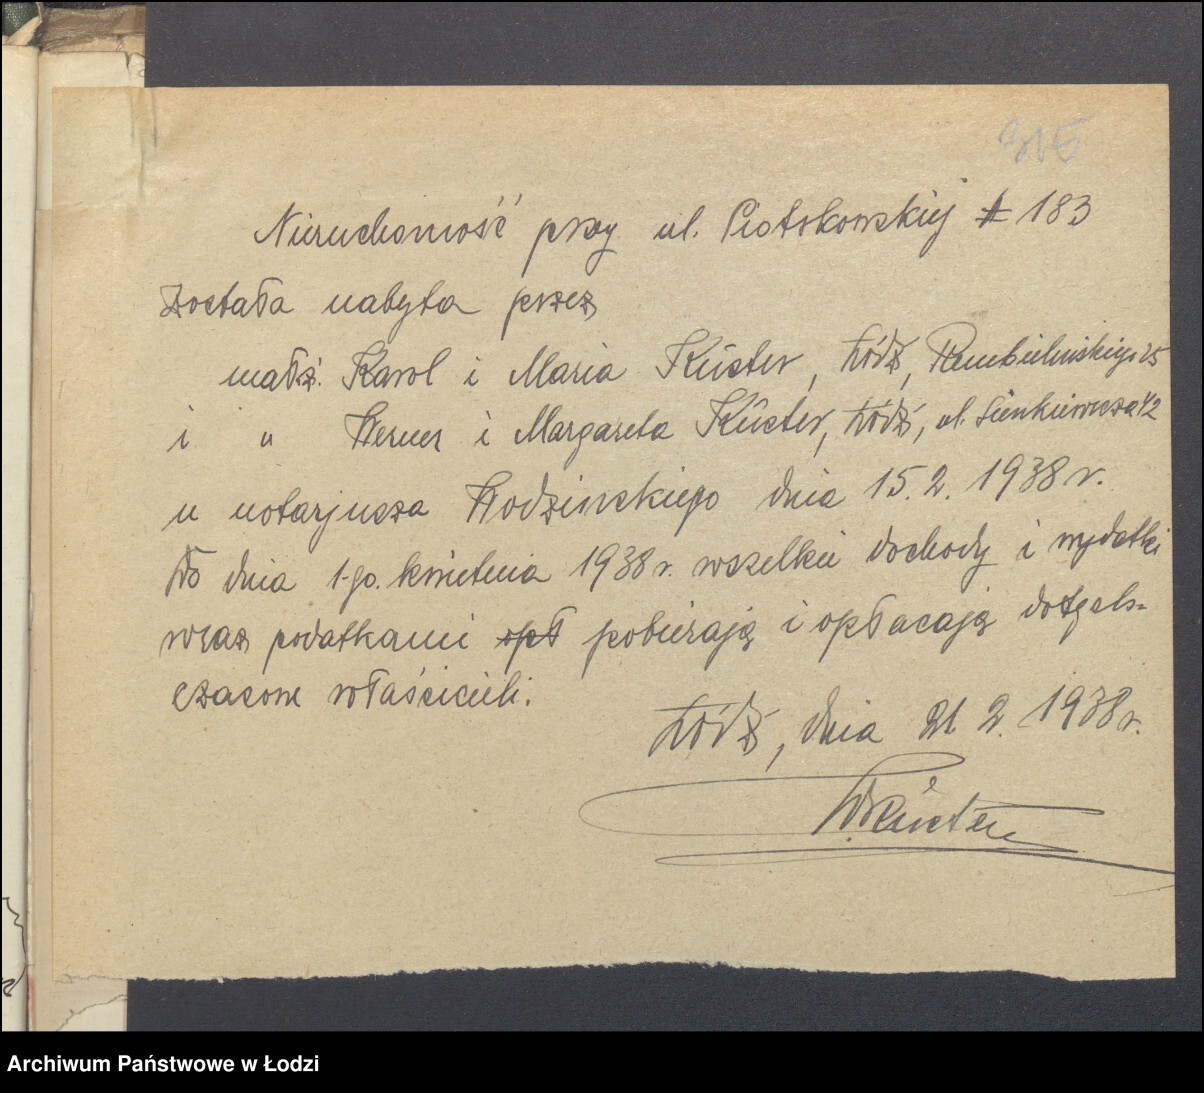 315
Nieruchomość przy ul. Piotrkowskiej № 183
została nabyta przez
małż. Karol i Maria Küster, Łódź, Rembielińskiego 25
i " Werner i Margareta Küster, Łódź, ul. Sienkiewicza 42
u notarjusza Wodzinskiego dnia 15.2. 1938 r.
Do dnia 1-go. kwietnia 1938 r. wszelkie dochody i wydatki
wraz podatkami opł pobierają i opłacają dotych=
czasowe właścicieli.
Łódź, dnia 21 2. 1938 r.
W. Küster
Archiwum Państwowe w Łodzi